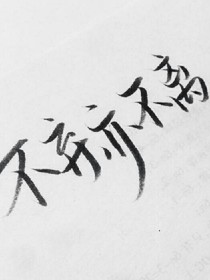 不弃亦不离